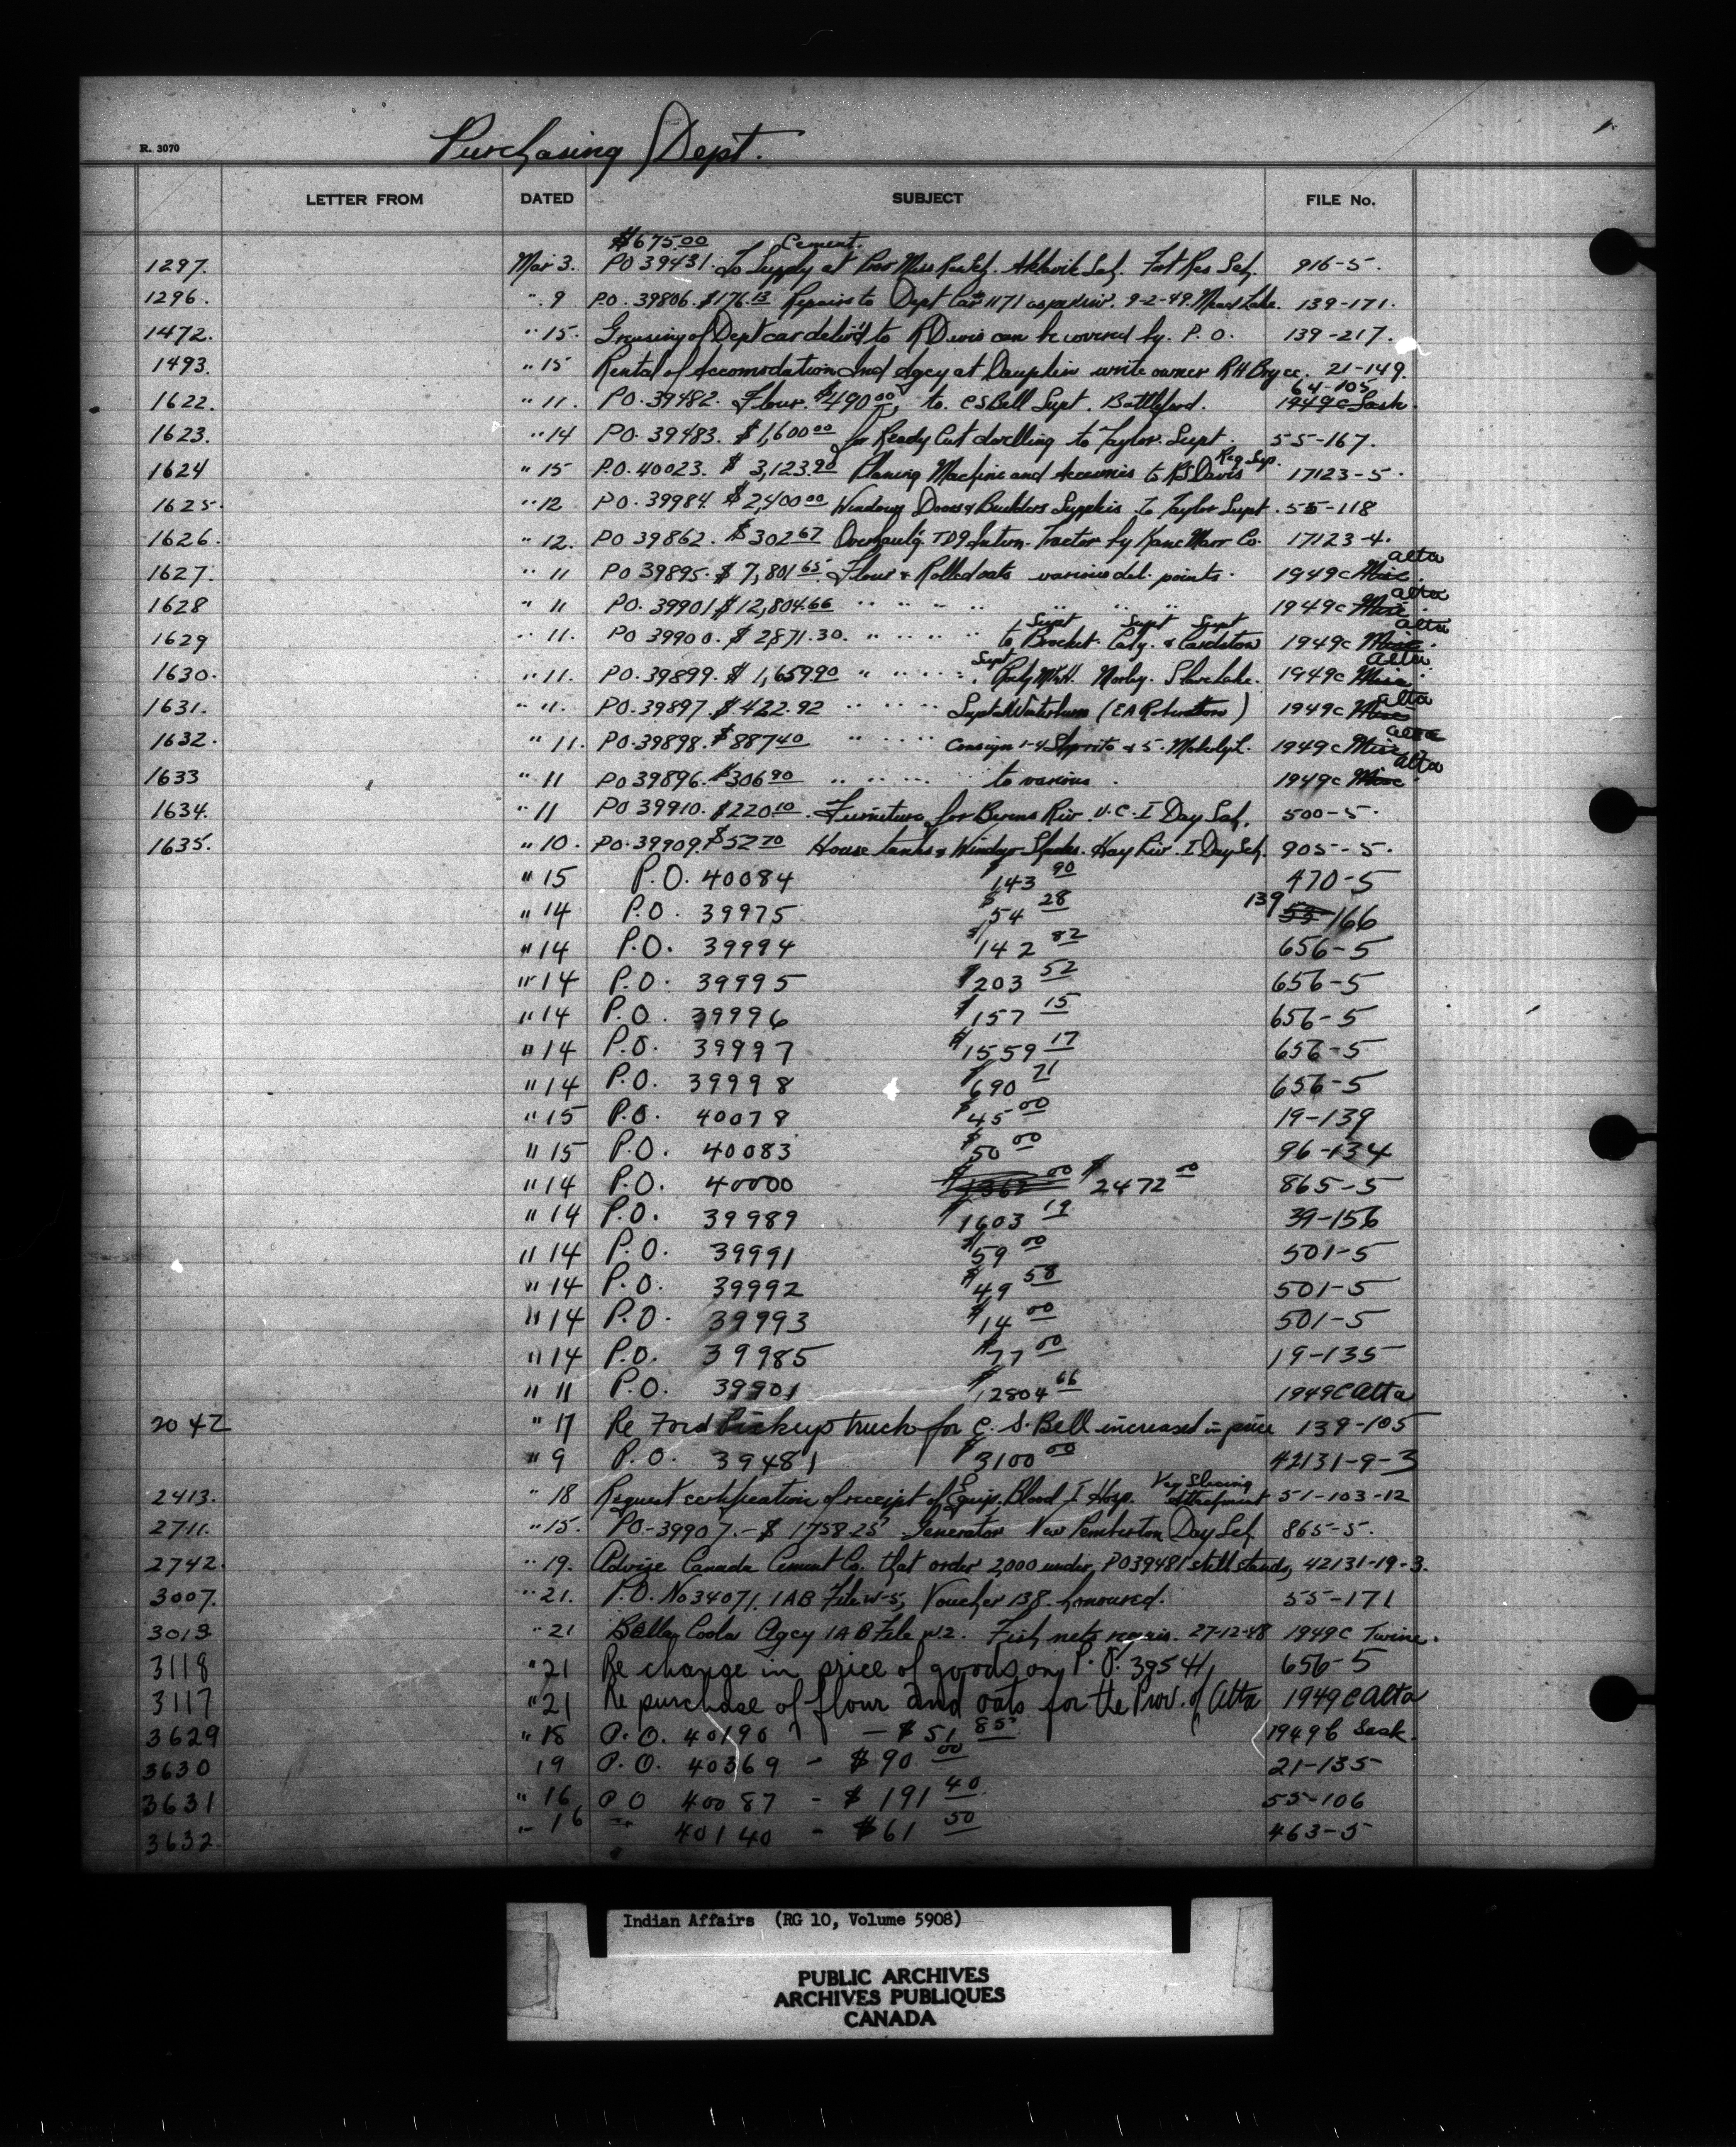 Purchasing Dept.
R. 3070
LETTER FROM DATED SUBJECT FILE No.
$675.00 Cement.
1297. Mar 3. PO 39431. To Supply at Aklavik Sch. Fort Res Sch. 916-5.
1296. " 9 P.O. 39806. $176.13 Repairs to Dept Car 1171 9-2-49. 139-171.
1472. " 15. Greasing of Dept car deliv'd to R Davis can be covered by P.O. 139-217.
1493. " 15 Rental of Accomodation Ind Agcy at Dauphin write owner RH Bryce. 21-149.
64-105
1622. " 11. P.O. 39482. Flour. $490.00, to. CS Bell Supt. Battleford. 1949c Sask.
1623. " 14 PO. 39483. $1,600.00 for Ready Cut dwelling to Taylor. Supt. 55-167.
Reg Sup.
1624 " 15 P.O. 40023. $3,123.90 Planing Machine and Accessories to RS Davis 17123-5.
1625. " 12 PO. 39984. $2,400.00 Windows Doors & Builders Supplies to Taylor Supt. 55-118
1626. " 12. PO 39862. $302.67 Overhaul'g. TD9 Intern. Tractor by Kane Marr Co. 17123-4.
alta
1627. " 11 PO 39895. $7,801.65. Flour & Rolled oats various del. points. 1949c Misc.
alta
1628 " 11 PO. 39901 $12,804.66 " " " " " " " 1949c Misc.
Supt Supt Supt alta
1629 " 11. PO 39900. $2871.30. " " " " to Brocket. Calg. & Cardston 1949c Misc.
Supt alta
1630. " 11. PO. 39899. $1,659.90 " " " " Morley. Slave Lake. 1949c Misc.
alta
1631. " 11. PO. 39897. $422.92 " " " " (EA Robertson) 1949c Misc
alta
1632. " 11. PO. 39898. $887.40 " " " Consign 1-4 & 5. 1949c Misc
alta
1633 " 11 PO 39896. $306.90 " " " to various. 1949c Misc
1634. " 11 PO 39910. $220.10. Furniture for Berens Riv. U.C. I Day Sch. 500-5.
1635. " 10. PO. 39909. $52.70 House tanks & Window Shades. Hay Riv. I Day Sch. 905-5.
" 15 P.O. 40084 $143.90 470-5
" 14 P.O. 39975 $54.28 139 55-166
" 14 P.O. 39994 $142.82 656-5
" 14 P.O. 39995 $203.52 656-5
" 14 P.O. 39996 $157.15 656-5
" 14 P.O. 39997 $1559.17 656-5
" 14 P.O. 39998 $690.71 656-5
" 15 P.O. 40079 $45.00 19-139
" 15 P.O. 40083 $50.00 96-134
" 14 P.O. 40000 $1362.00 $2472.00 865-5
" 14 P.O. 39989 $1603.19 39-156
" 14 P.O. 39991 $59.00 501-5
" 14 P.O. 39992 $49.58 501-5
" 14 P.O. 39993 $14.00 501-5
" 14 P.O. 39985 $77.00 19-135
" 11 P.O. 39901 $12804.66 1949C Alta
2042 " 17 Re Ford Pickup truck for C. S. Bell increased in price 139-105
" 9 P.O. 39481 $3100.00 42131-9-3
Veg Slicing
2413. " 18 Request certification of receipt of Equip. Blood I Hosp. Attachment 51-103-12
2711. " 15. PO-39907.-$1758.25 Generator New Pemberton Day Sch. 865-5.
2742. " 19. Advise Canada Cement Co. that order 2,000 under PO39481 still stands, 42131-19-3.
3007. " 21. P.O. No 34071. IAB File W-5, Voucher 138. honoured. 55-171
3013 " 21 Bella Coola Agcy IAB File W2. Fish nets repair. 27-12-48 1949C Twine.
3118 " 21 Re change in price of goods on P.O. 39541, 656-5
3117 " 21 Re purchase of flour and oats for the Prov. of Alta 1949C Alta
3629 " 18 P.O. 40190 - $51.85 1949C Sask.
3630 19 P.O. 40369 - $90.00 21-135
3631 " 16 PO 40087 - $191.40 55-106
3632 " 16 " 40140 - $61.50 463-5
Indian Affairs (RG 10, Volume 5908)
PUBLIC ARCHIVES
ARCHIVES PUBLIQUES
CANADA